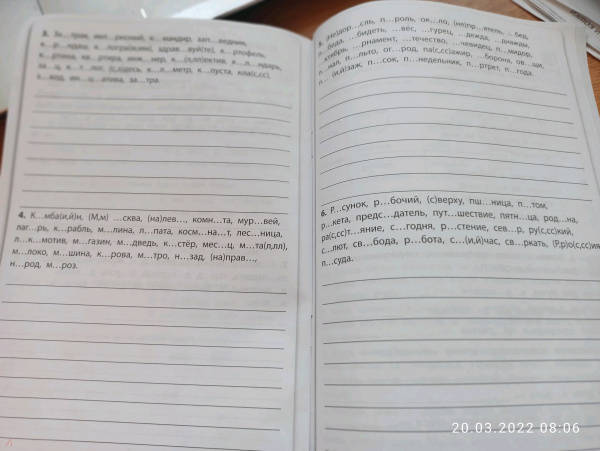 3. За…трак, инт…ресный, к…мандир, зап…ведник,
к…р…ндаш, к…логра(м,мм), здрав…вуй(те), к…ртофель,
к…ртина, кв…ртира, инж…нер, к…(л,лл)ектив, к…л…ндарь,
за…ц, к…т…лог, (с,з)десь, к…л…метр, к…пуста, кла(с,сс),
к…вод, ин…ц…атива, за…тра.
4. К…мба(и,й)н, (М,м)…сква, (на)лев…, комн…та, мур…вей,
лаг…рь, к…рабль, м…лина, л…пата, косм…на…т, лес…ница,
л…к…мотив, м…газин, м…дведь, к…стёр, мес…ц, м…та(л,лл),
м…локо, м…шина, к…рова, м…тро, н…зад, (на)прав…,
н…род, м…роз.
5. (Не)дор…сль, п…роль, ок…ло, (не)пр…ятель, …бед,
…беда, …бидеть, …вёс, …гурец, …дежда, …днажды,
…ктябрь, …рнамент, …течество, …чевидец, п…мидор,
п…нал, п…льто, ог…род, па(с,сс)ажир, …борона, ов…щи,
п…(и,й)заж, п…сок, п…недельник, п…ртрет, п…года.
6. Р…сунок, р…бочий, (с)верху, пш…ница, п…том,
р…кета, предс…датель, пут…шествие, пятн…ца, род…на,
ра(с,сс)т…яние, с…годня, р…стение, сев…р, ру(с,сс)кий,
с…лют, св…бода, р…бота, с…(и,й)час, св…ркать, (Р,р)о(с,сс)ия,
п…суда.
20.03.2022 08:06